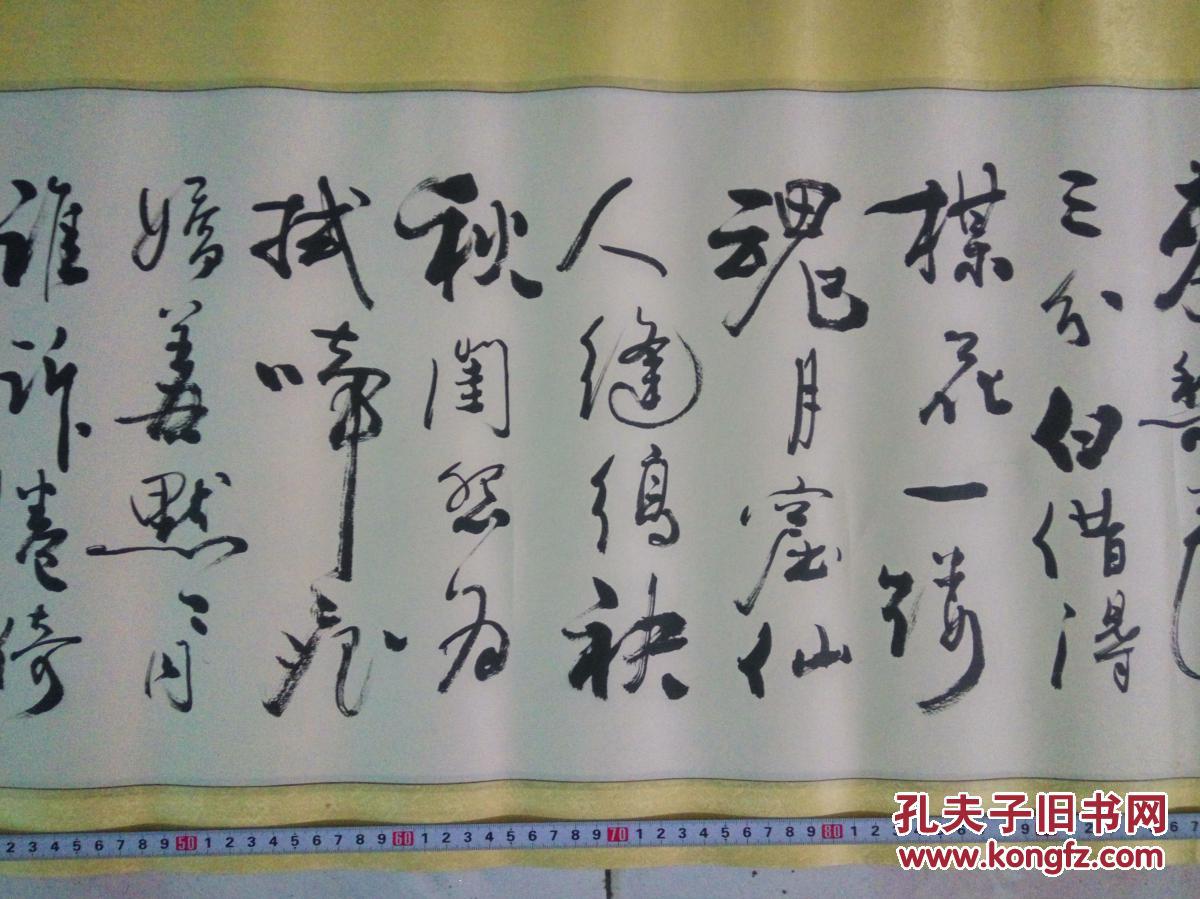 三分白借得
楳花一縷
魂月窟仙
人縫縞袂
秋閨怨女
拭啼痕
嬌羞默々同
誰訴倦倚
2 3 4 5 6 7 8 9 50 1 2 3 4 5 6 7 8 9 60 1 2 3 4 5 6 7 8 9 70 1 2 3 4 5 6 7 8 9 80 1 2 3 4
孔夫子旧书网
www.kongfz.com